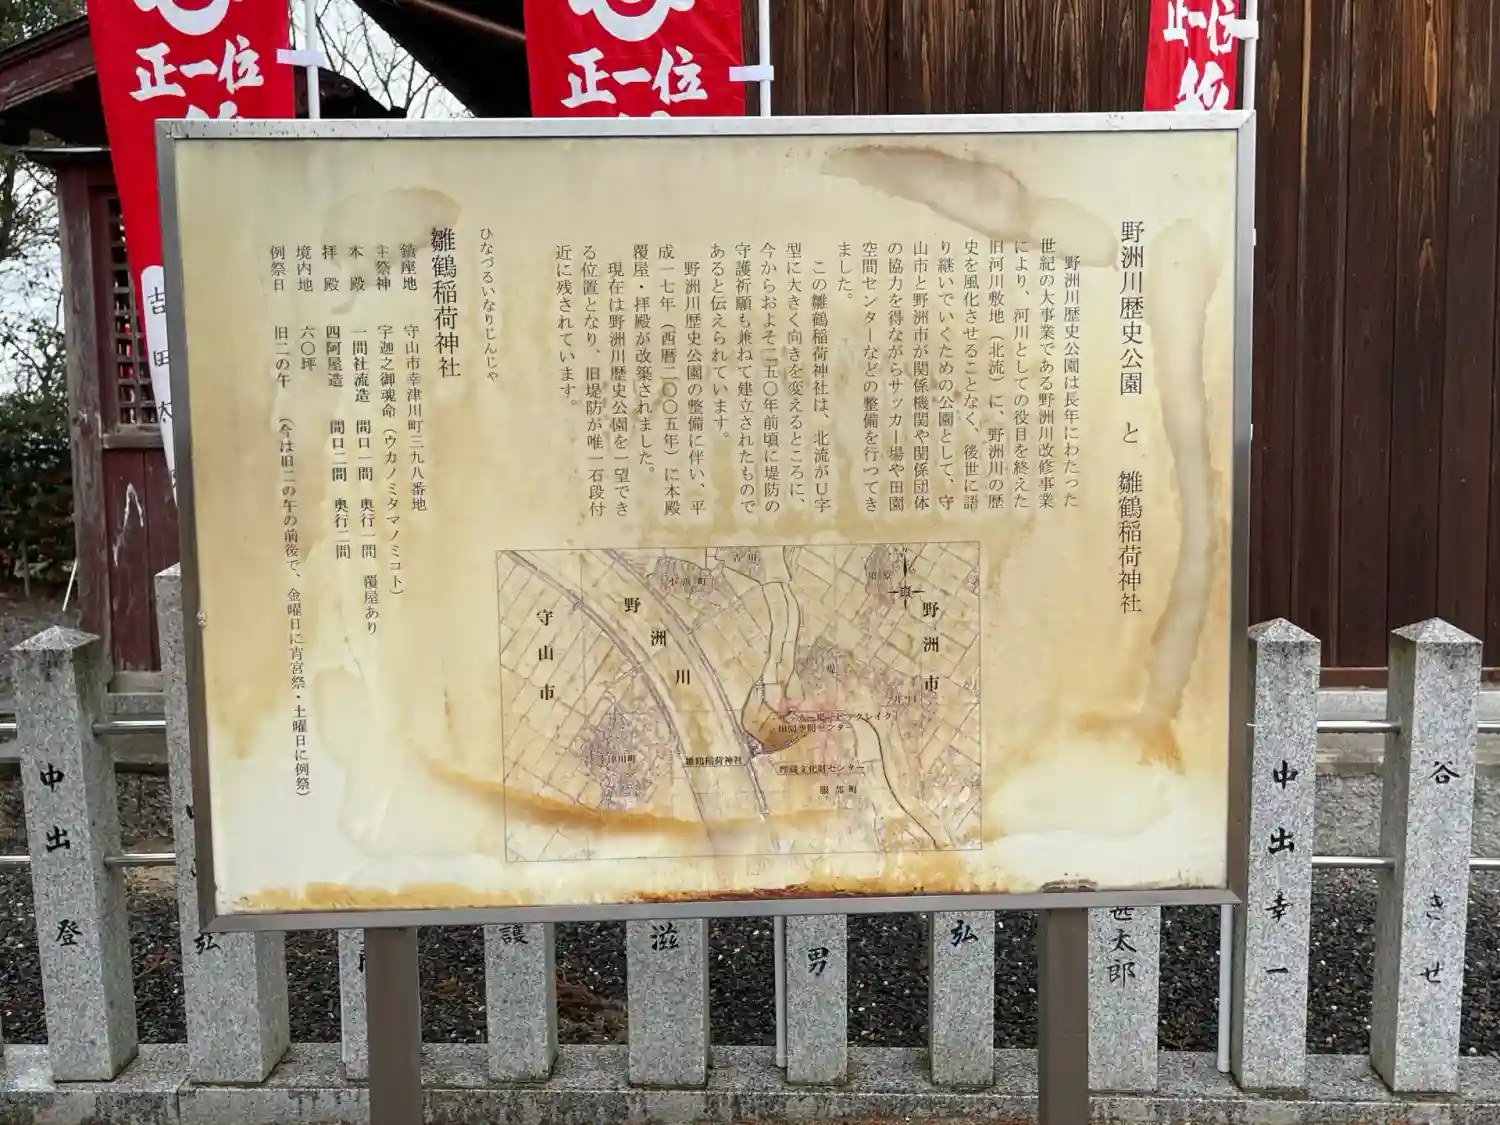 正一位
正一位
正一位
野洲川歴史公園 と 雛鶴稲荷神社
野洲川歴史公園は長年にわたった
世紀の大事業である野洲川改修事業
により、河川としての役目を終えた
旧河川敷地(北流)に、野洲川の歴
史を風化させることなく、後世に語
り継いでいくための公園として、守
山市と野洲市が関係機関や関係団体
の協力を得ながらサッカー場や田園
空間センターなどの整備を行ってき
ました。
この雛鶴稲荷神社は、北流がU字
型に大きく向きを変えるところに、
今からおよそ二五〇年前頃に堤防の
守護祈願も兼ねて建立されたもので
あると伝えられています。
野洲川歴史公園の整備に伴い、平
成一七年(西暦二〇〇五年)に本殿
覆屋・拝殿が改築されました。
現在は野洲川歴史公園を一望でき
る位置となり、旧堤防が唯一石段付
近に残されています。
ひなづるいなりじんじゃ
雛鶴稲荷神社
鎮座地 守山市幸津川町三九八番地
主祭神 宇迦之御魂命(ウカノミタマノミコト)
本 殿 一間社流造 間口一間 奥行一間 覆屋あり
拝 殿 四阿屋造 間口二間 奥行二間
境内地 六〇坪
例祭日 旧二の午 (今は旧二の午の前後で、金曜日に宵宮祭・土曜日に例祭)
野洲市
野洲川
守山市
吉川
小浜町
堤
井口
ビッグレイク
田園空間センター
雛鶴稲荷神社
埋蔵文化財センター
服部町
津川町
中出登
弘
護
滋
男
弘
甚太郎
中出幸一
谷きせ